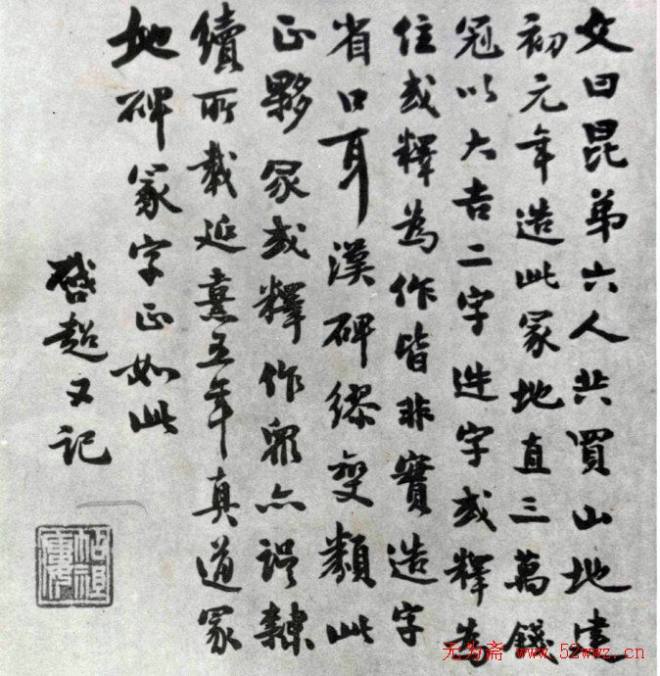 文曰昆弟六人共買山地建
初元年造此冢地直三萬錢
冠以大吉二字造字或釋為
住或釋為作皆非實造字
省口耳漢碑繆變類此
正夥冢或釋作眾亦誤隸
續所載延熹五年真道冢
地碑冢字正如此
啓超又記
无为斋 www.52wwz.cn